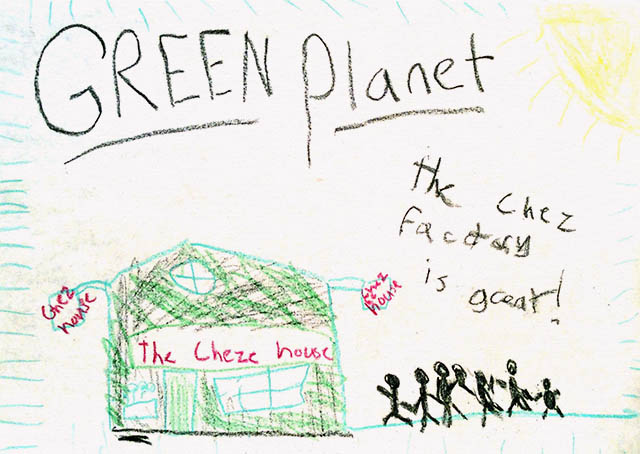 GREEN planet
the chez
factory
is great!
Chez
house
Chez
house
The Cheze house